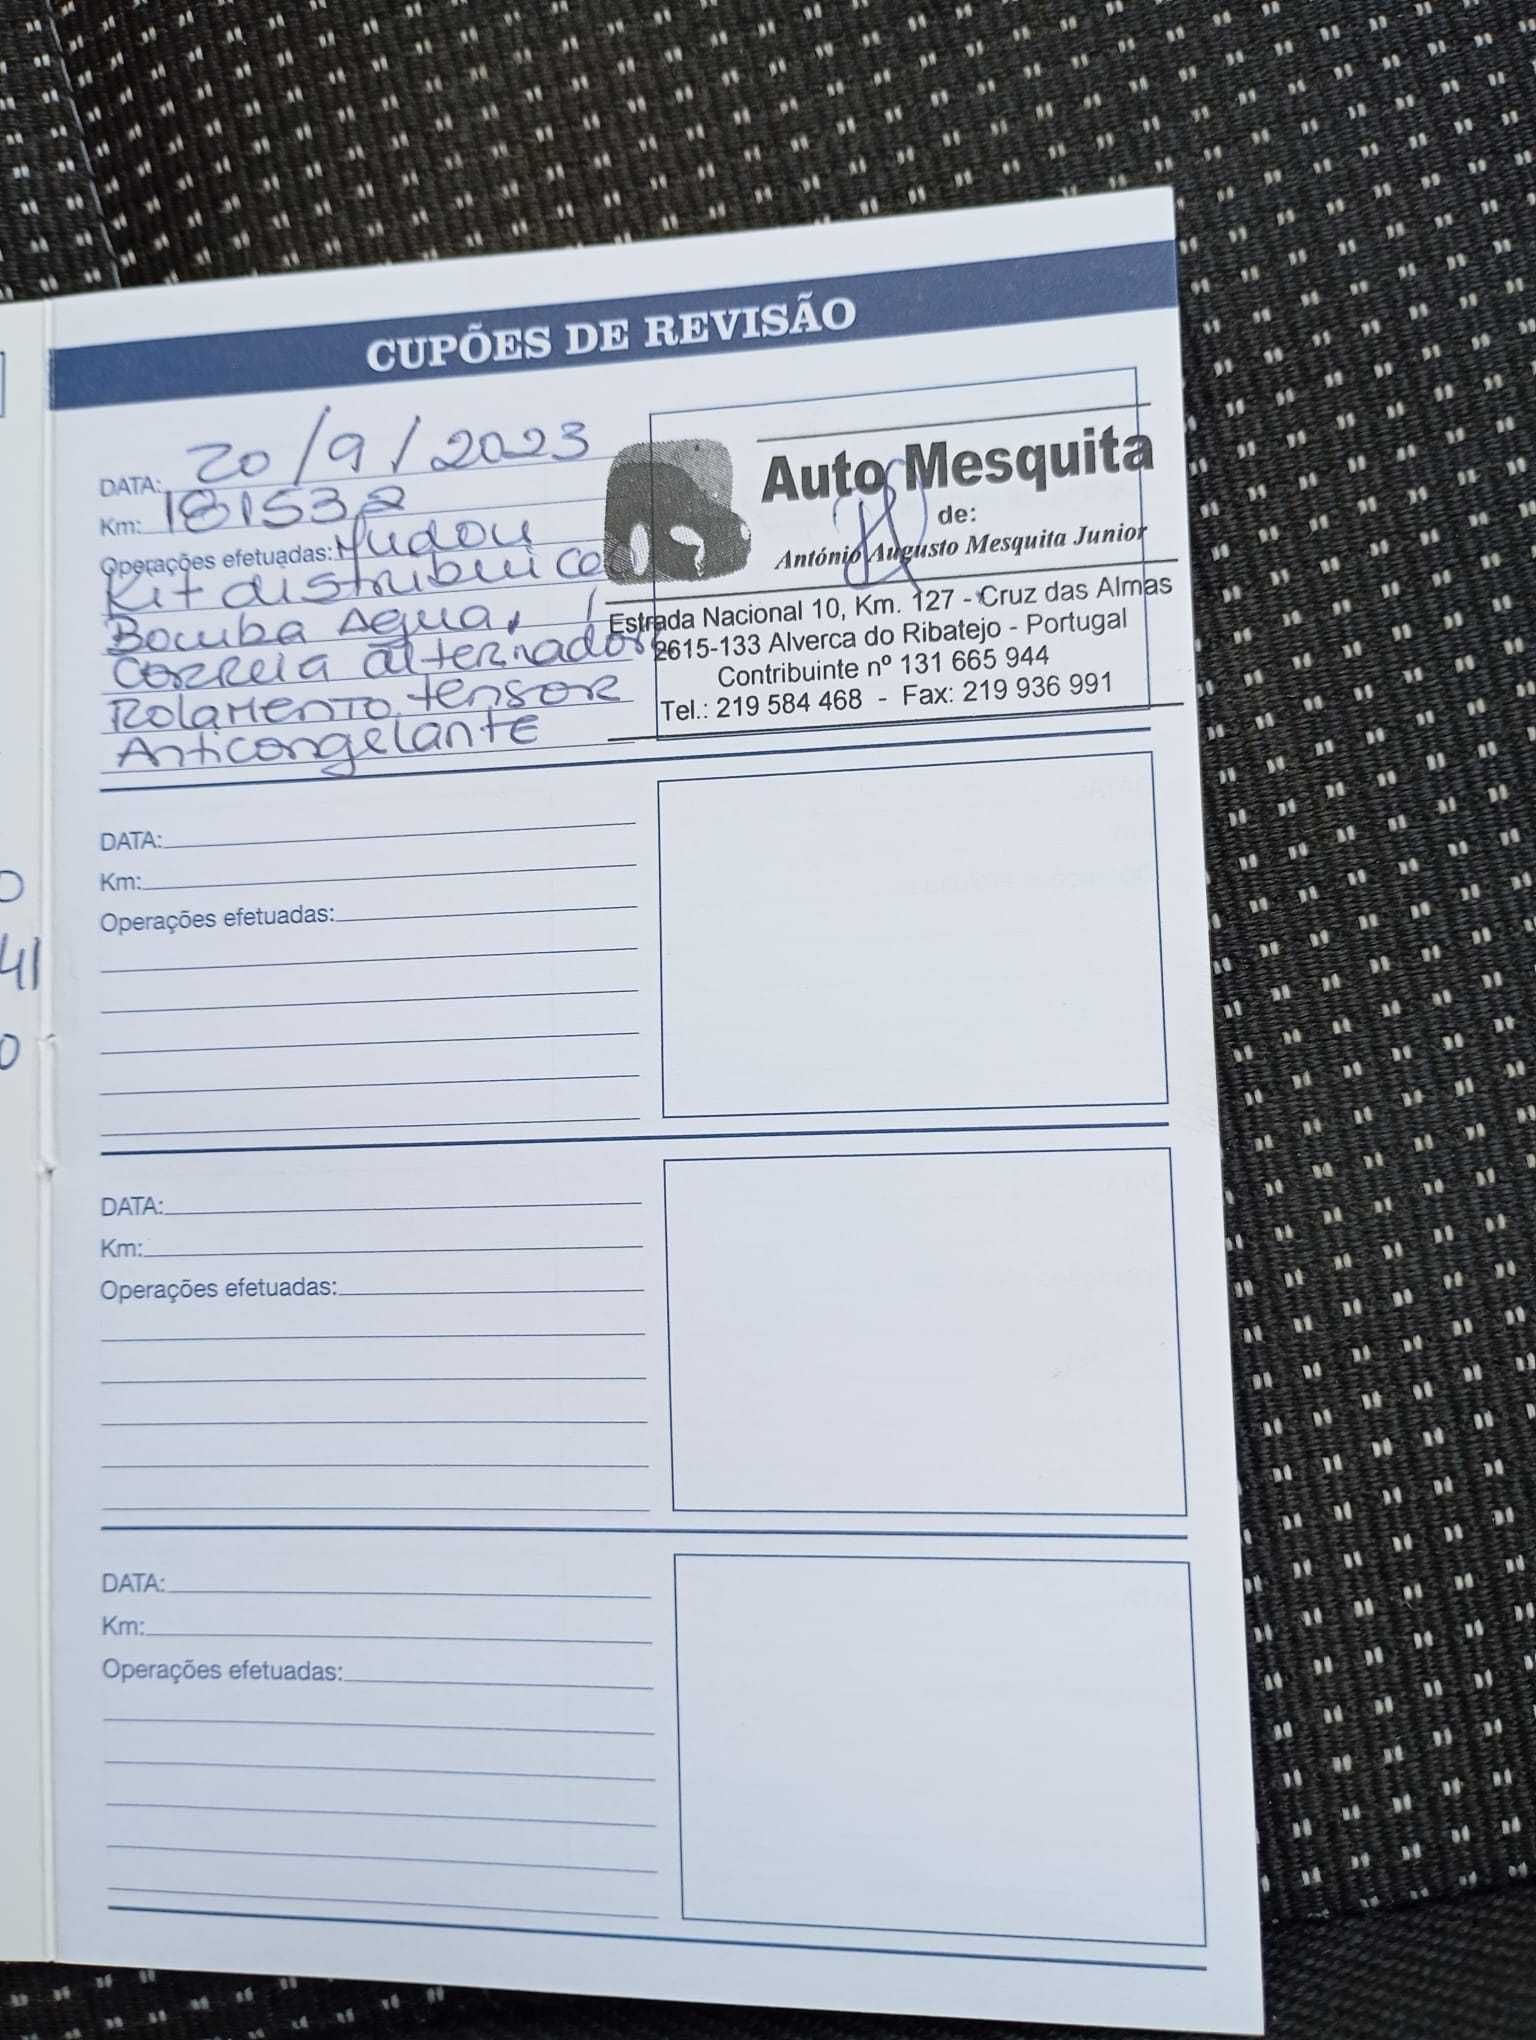 CUPÕES DE REVISÃO
DATA: 20/9/2023
Km: 181532
Operações efetuadas: Mudou
Kit distribuico
Bomba Agua,
Correia alternador
Rolamento tensor
Anticongelante
Auto Mesquita
de:
António Augusto Mesquita Junior
Estrada Nacional 10, Km. 127 - Cruz das Almas
2615-133 Alverca do Ribatejo - Portugal
Contribuinte nº 131 665 944
Tel.: 219 584 468 - Fax: 219 936 991
DATA:
Km:
Operações efetuadas:
DATA:
Km:
Operações efetuadas:
DATA:
Km:
Operações efetuadas:
0
41
0